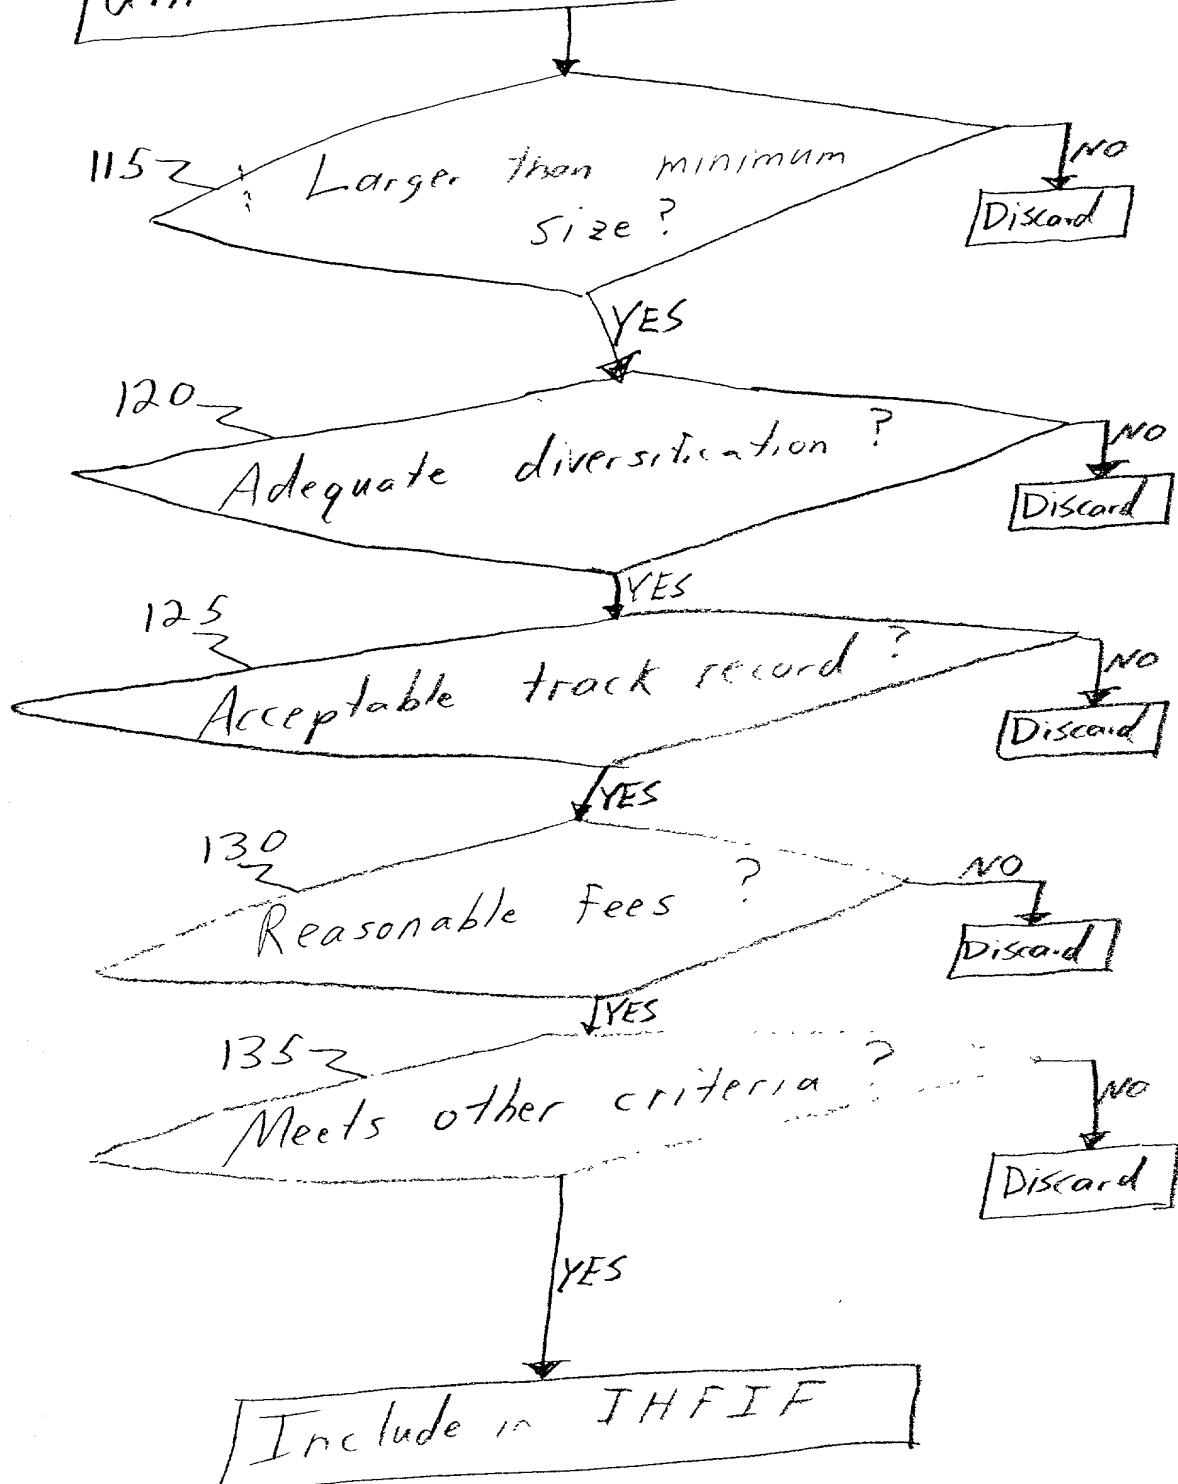 115
Larger than minimum
size?
NO
Discard
YES
120
Adequate diversification?
NO
Discard
YES
125
Acceptable track record?
NO
Discard
YES
130
Reasonable Fees?
NO
Discard
YES
135
Meets other criteria?
NO
Discard
YES
Include in IHFIF